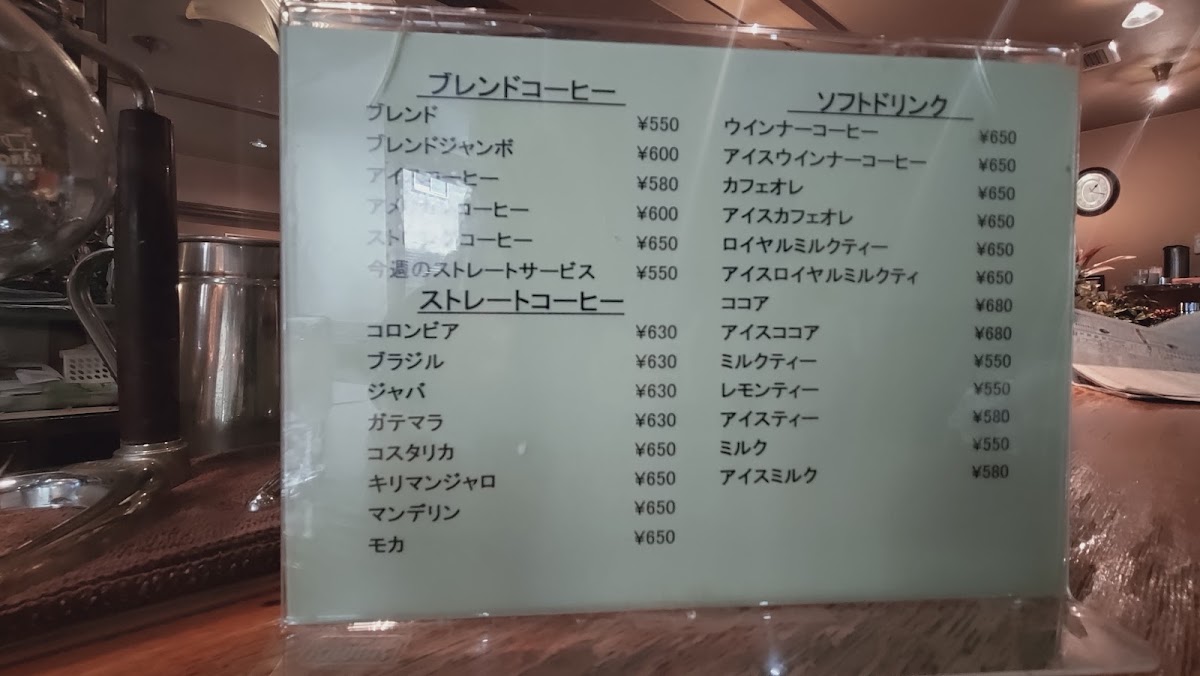 ブレンドコーヒー
ブレンド ¥550
ブレンドジャンボ ¥600
アイスコーヒー ¥580
アメリカンコーヒー ¥600
ストロングコーヒー ¥650
今週のストレートサービス ¥550
ストレートコーヒー
コロンビア ¥630
ブラジル ¥630
ジャバ ¥630
ガテマラ ¥630
コスタリカ ¥650
キリマンジャロ ¥650
マンデリン ¥650
モカ ¥650
ソフトドリンク
ウインナーコーヒー ¥650
アイスウインナーコーヒー ¥650
カフェオレ ¥650
アイスカフェオレ ¥650
ロイヤルミルクティー ¥650
アイスロイヤルミルクティ ¥650
ココア ¥680
アイスココア ¥680
ミルクティー ¥550
レモンティー ¥550
アイスティー ¥580
ミルク ¥550
アイスミルク ¥580